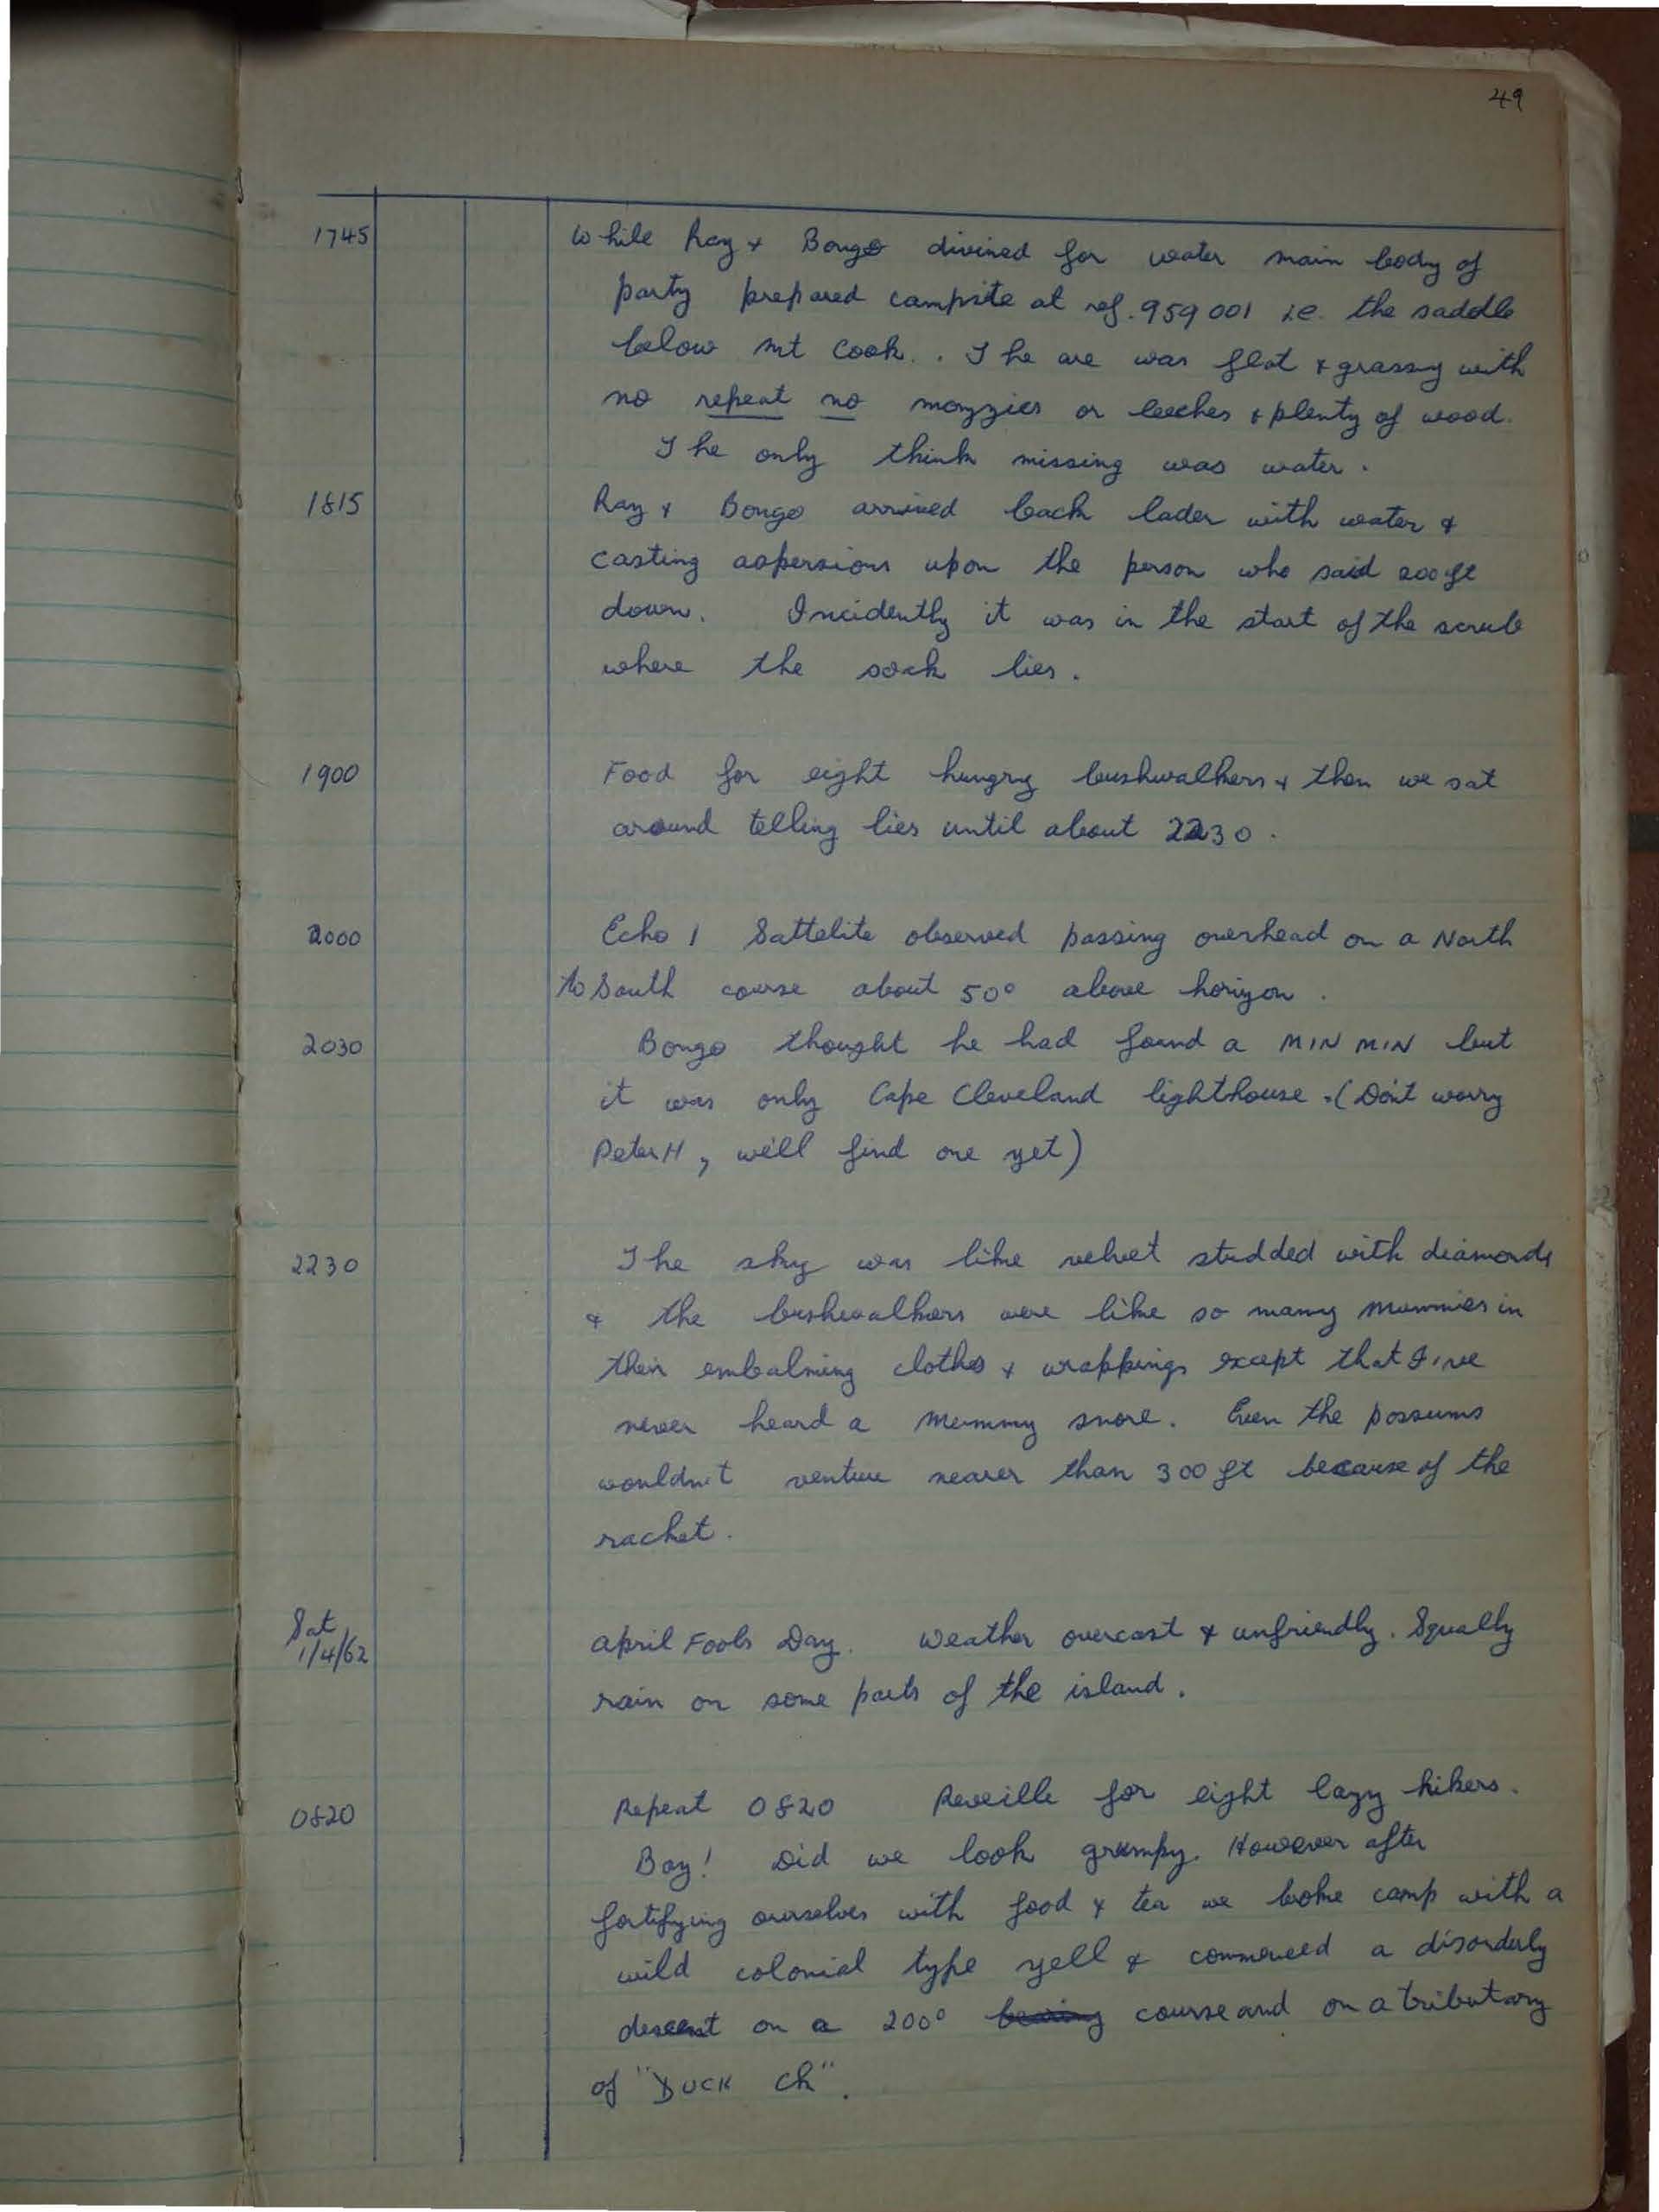 49
1745 While Ray & Bongo divined for water main body of
party prepared campsite at ref. 959 001 i.e. the saddle
below Mt Cook. . The are was flat & grassy with
no repeat no mozzies or leeches & plenty of wood.
The only think missing was water.
1815 Ray & Bongo arrived back laden with water &
casting aspersions upon the person who said 200 ft
down. Incidently it was in the start of the scrub
where the sock lies.
1900 Food for eight hungry bushwalkers & then we sat
around telling lies until about 2230.
2000 Echo 1 Sattelite observed passing overhead on a North
to South course about 50° above horizon.
2030 Bongo thought he had found a MIN MIN but
it was only Cape Cleveland lighthouse. (Don't worry
Peter H, we'll find one yet)
2230 The sky was like velvet studded with diamonds
& the bushwalkers were like so many mummies in
their embalming clothes & wrappings except that I've
never heard a mummy snore. Even the possums
wouldn't venture nearer than 300 ft because of the
racket.
Sat
1/4/62 April Fools Day. Weather overcast & unfriendly. Squally
rain on some parts of the island.
0820 Repeat 0820 Reveille for eight lazy hikers.
Boy! Did we look grumpy. However after
fortifying ourselves with food & tea we broke camp with a
wild colonial type yell & commenced a disorderly
descent on a 200° bearing course and on a tributary
of "DUCK Ck".